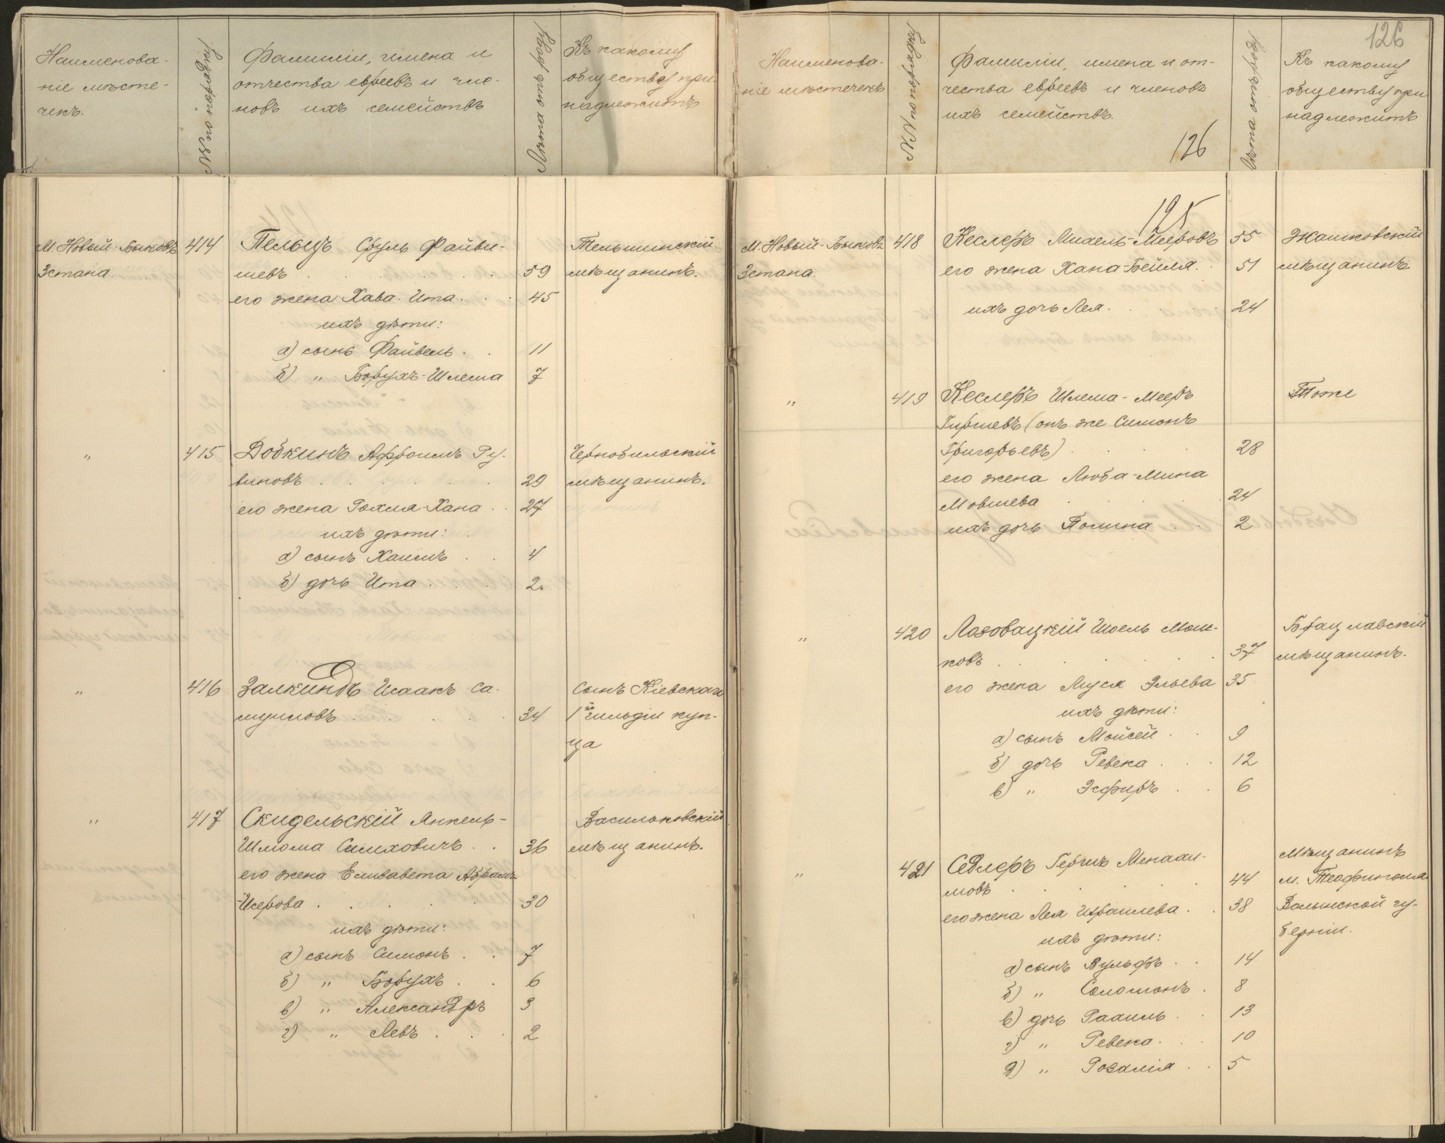 Наименова-
ніе мѣсте-
чекъ.
№№ по порядку
Фамиліи, имена и
отчества евреевъ и чле-
новъ ихъ семействъ
Лѣта отъ роду
Къ какому
обществу при
надлежитъ
М. Новый-Быковъ
3 стана
414
Пельцъ Сруль Файви-
шевъ 59
Тельшинскій
мѣщанинъ.
его жена Хава-Ита 45
ихъ дѣти:
а) сынъ Файвель 11
б) „ Борухъ-Шлема 7
„ 415
Добкинъ Афроимъ Ру-
виновъ 29
Чернобыльскій
мѣщанинъ.
его жена Рохля-Хана 27
ихъ дѣти:
а) сынъ Хаимъ 4
б) дочь Ита 2.
„ 416
Залкиндъ Исаакъ Са-
муиловъ 34
сынъ Кіевскаго
1й гильдіи куп-
ца
„ 417
Скидельскій Янкель-
Шлома Симховичъ 36
Васильковскій
мѣщанинъ.
его жена Елизавета Абрамъ
-Исерова 30
ихъ дѣти:
а) сынъ Симонъ 7
б) „ Борухъ 6
в) „ Александръ 3
г) „ Левъ 2
126
Наименова-
ніе мѣстечекъ
№№ по порядку
Фамиліи, имена и от-
чества евреевъ и членовъ
ихъ семействъ.
126
Лѣта отъ роду
Къ какому
обществу при
надлежитъ
195
М. Новый-Быковъ
3 стана.
418
Кеслеръ Михель-Мееровъ 55
Жашковскій
мѣщанинъ
его жена Хана-Бейля 51
ихъ дочь Лея 24
„ 419
Кеслеръ Шлема-Мееръ
Гиршевъ (онъ же Симонъ
Григорьевъ) 28
Тоже
его жена Люба-Мина
Мовшева 24
ихъ дочь Полина 2
„ 420
Лоховацкій Шоель Мош-
ковъ 37
Брацлавскій
мѣщанинъ.
его жена Муся Эльева 35
ихъ дѣти:
а) сынъ Мойсей 9
б) дочь Ревека 12
в) „ Эсфирь 6
„ 421
Седлеръ Гершъ Менаш-
мовъ 44
Мѣщанинъ
м. Теофиполя
Волынской гу-
берніи.
его жена Лея Израилева 38
ихъ дѣти:
а) сынъ Вульфъ 14
б) „ Соломонъ 8
в) дочь Рахиль 13
г) „ Ревека 10
д) „ Розалія 5